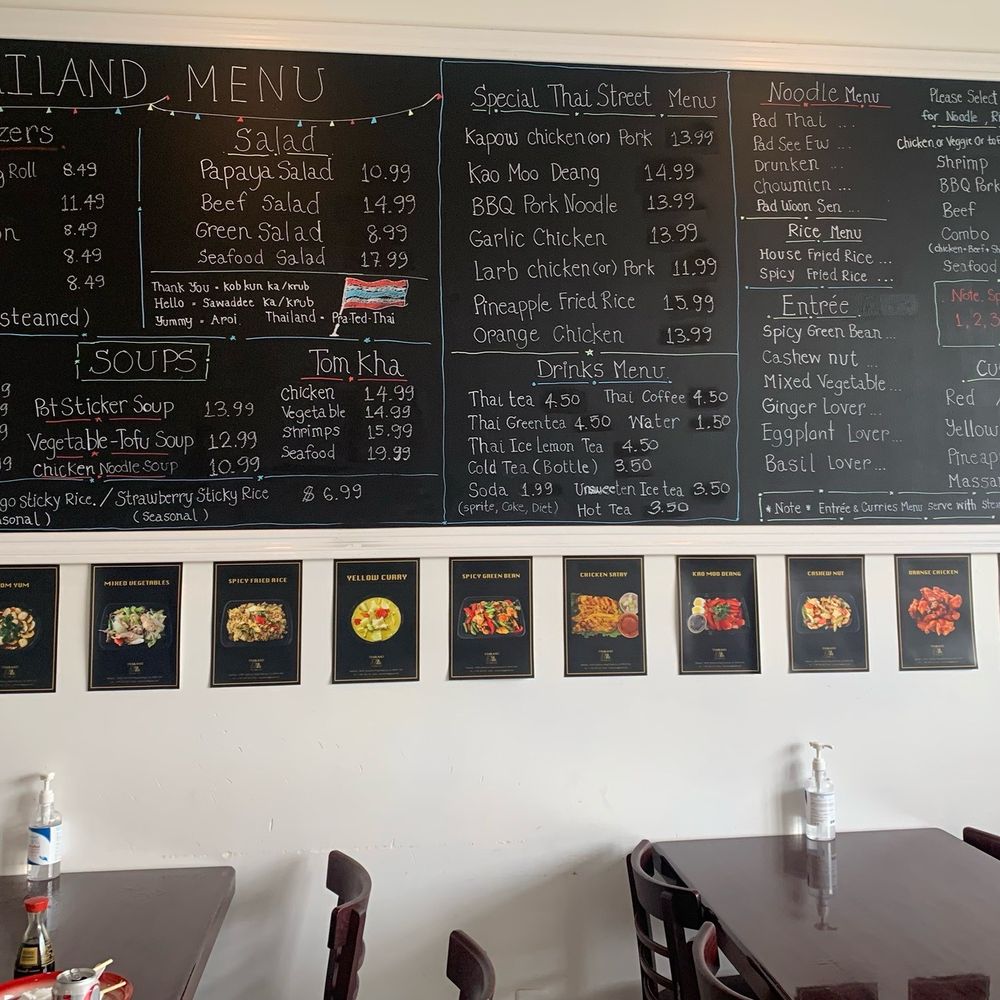 AILAND MENU
zers
g Roll 8.49
11.49
on 8.49
8.49
8.49
steamed)
Salad
Papaya Salad 10.99
Beef Salad 14.99
Green Salad 8.99
Seafood Salad 17.99
Thank You = kob kun ka/krub
Hello = Sawaddee ka/krub
Yummy = Aroi Thailand = Pra-Ted-Thai
SOUPS
Pot Sticker Soup 13.99
Vegetable-Tofu Soup 12.99
Chicken Noodle Soup 10.99
Tom Kha
Chicken 14.99
Vegetable 14.99
Shrimps 15.99
Seafood 19.99
go Sticky Rice. / Strawberry Sticky Rice $6.99
asonal) (Seasonal)
Special Thai Street Menu
Kapow Chicken (or) Pork 13.99
Kao Moo Deang 14.99
BBQ Pork Noodle 13.99
Garlic Chicken 13.99
Larb chicken (or) Pork 11.99
Pineapple Fried Rice 15.99
Orange Chicken 13.99
Drinks Menu
Thai tea 4.50 Thai Coffee 4.50
Thai Green tea 4.50 Water 1.50
Thai Ice Lemon Tea 4.50
Cold Tea (Bottle) 3.50
Soda 1.99 Unsweeten Ice tea 3.50
(sprite, Coke, Diet) Hot Tea 3.50
Noodle Menu
Pad Thai ...
Pad See Ew ...
Drunken ...
Chowmien ...
Pad Woon Sen ...
Rice Menu
House Fried Rice ...
Spicy Fried Rice ...
Entrée
Spicy Green Bean ...
Cashew nut ...
Mixed Vegetable ...
Ginger Lover ...
Eggplant Lover ...
Basil Lover ...
* Note * Entrée & Curries Menu serve with Stea
Please Select
for Noodle, Ri
Chicken or Veggie or tof
Shrimp
BBQ Pork
Beef
Combo
(chicken+Beef+Sh
Seafood
Note. Sp
1, 2, 3
Cu
Red /
Yellow
Pineap
Massa
OM YUM
MIXED VEGETABLES
SPICY FRIED RICE
YELLOW CURRY
SPICY GREEN BEAN
CHICKEN SATAY
KAO MOO DEANG
CASHEW NUT
ORANGE CHICKEN